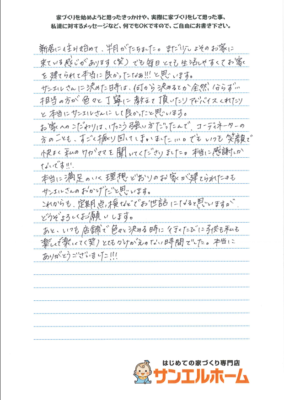 家づくりを始めようと思ったきっかけや、実際に家づくりをして思った事、
私達に対するメッセージなど、何でもOKですので、ご自由にお書き下さい。
新居に住み始めて、半月がたちました。まだ よそのお家に
来ている感じがあります(笑)でも毎日とても生活しやすくてお家
を建てられて本当に良かったなぁ!!!と思います。
サンエルさんに決めた時は、何から決めるとか全然
相当の方が色々と丁寧に教えて頂いたりアドバイスくれたり
と本当にサンエルさんにして良かったと思います。
お家へのこだわりは、けっこう強い方だったんで、コーディネーターの
方のことも、すごく振り回してしまいました でも いつも笑顔で
快よく私のワガママを聞いてくださりました。本当に感謝しか
ないです!!!
本当に満足のいく理想どおりのお家が建てられたのも
サンエルさんのおかげだと思います。
これからも、定期点検などでお世話になると思いますが
どうぞよろしくお願いします。
あと、いつも店舗で色々決める時に 行くたびに子供も私も
(笑)とてもかけがえのない時間でした。本当に
ありがとうございました!!!
はじめての家づくり専門店
サンエルホーム